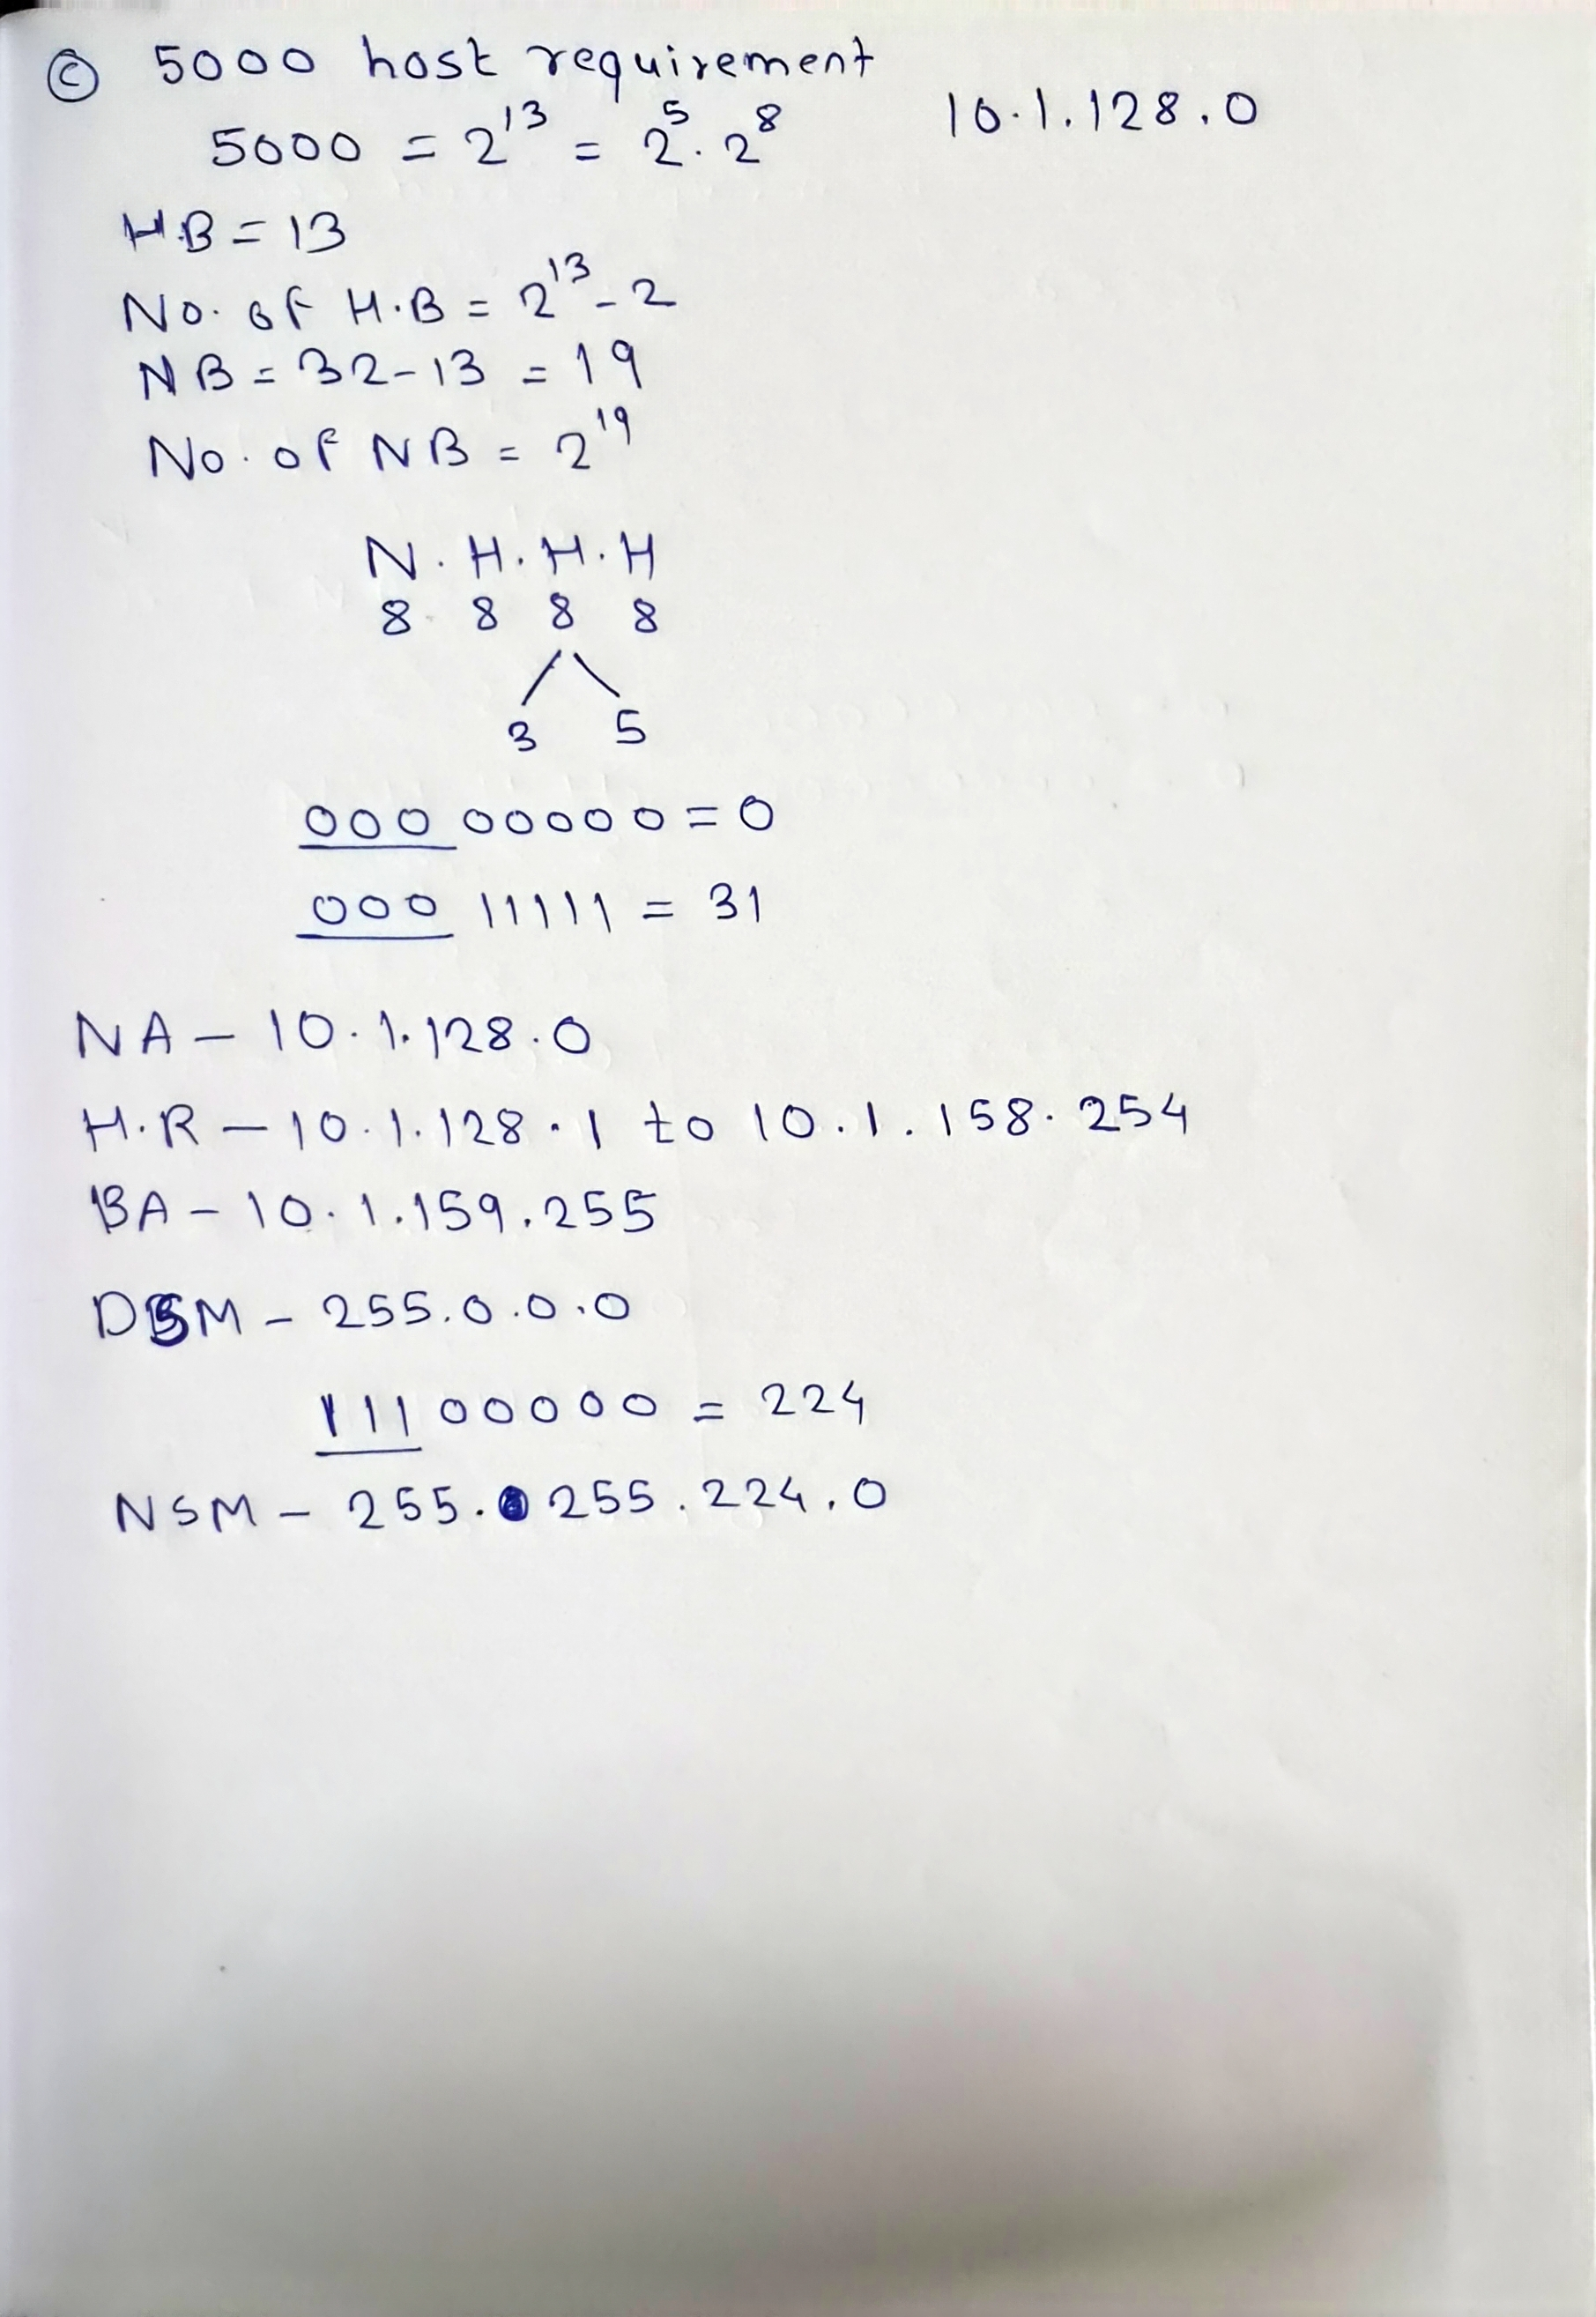 Ⓒ 5000 host requirement
10.1.128.0
5000 = 2¹³ = 2⁵. 2⁸
H.B = 13
No. of H.B = 2¹³ - 2
NB = 32 - 13 = 19
No. of NB = 2¹⁹
N . H . H . H
8 8 8 8
3 5
000 00000 = 0
000 11111 = 31
NA - 10.1.128.0
H.R - 10.1.128.1 to 10.1.158.254
BA - 10.1.159.255
DSM - 255.0.0.0
111 00000 = 224
NSM - 255.255.224.0